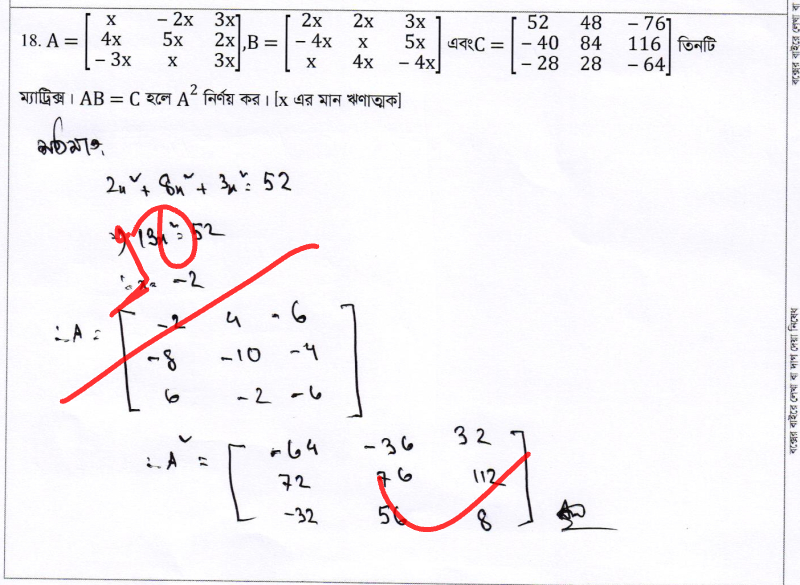 18. A = [ x - 2x 3x
4x 5x 2x
- 3x x 3x ], B = [ 2x 2x 3x
- 4x x 5x
x 4x - 4x ] এবং C = [ 52 48 - 76
- 40 84 116
- 28 28 - 64 ] তিনটি
ম্যাট্রিক্স। AB = C হলে A² নির্ণয় কর। [x এর মান ঋণাত্মক]
2x² + 8x² + 3x² = 52
13x² = 52
∴ x = -2
∴ A = [ -2 4 -6
-8 -10 -4
6 -2 -6 ]
∴ A² = [ -64 -36 32
72 76 112
-32 56 8 ]
বক্সের বাইরে লেখা বা দাগ দেয়া নিষেধ